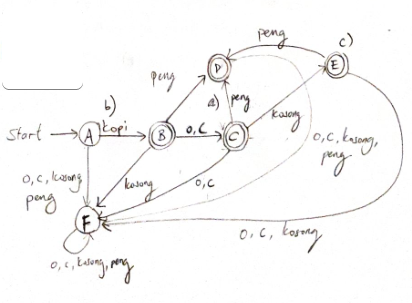 peng
c)
D
E
peng
b)
a)
peng
kopi
kosong
Start
A
B
O, C
C
O, C, kosong,
peng
O, C, kosong
peng
kosong
O, C
F
O, C, kosong
O, C, kosong, peng